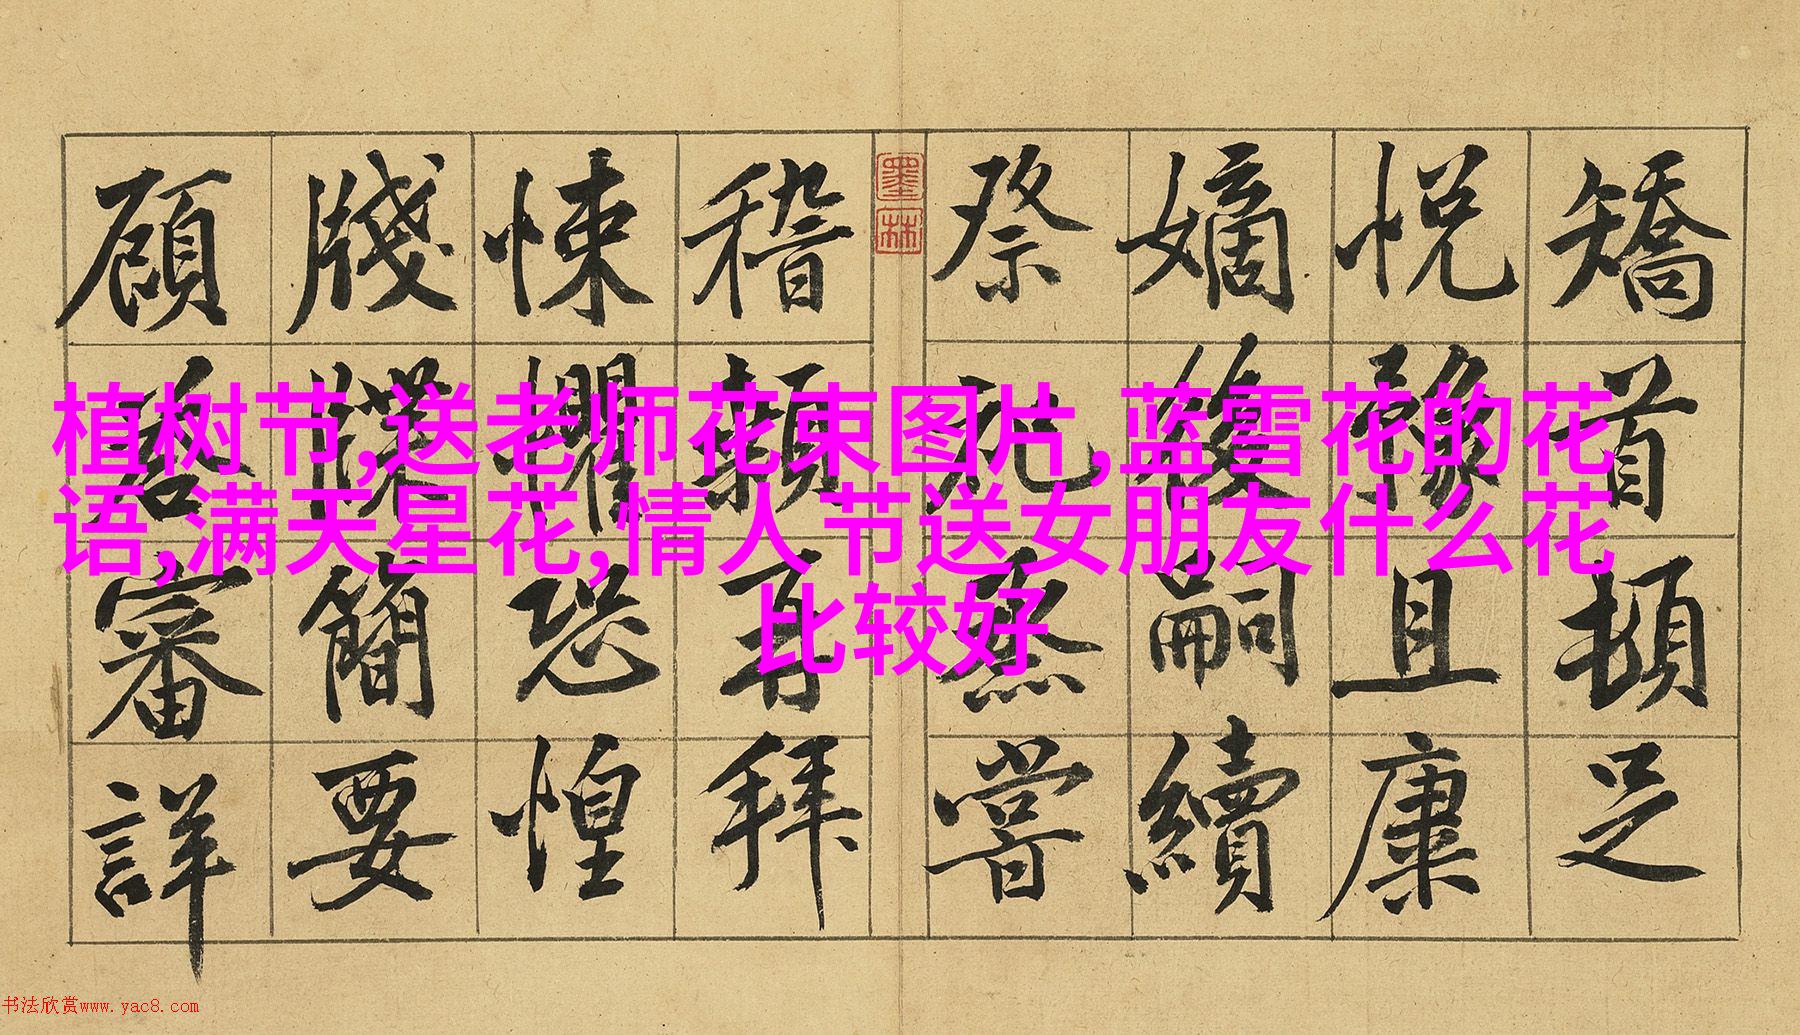 矯首頓足
悅豫且康
嫡後嗣續
祭祀烝嘗
墨林
稽顙再拜
悚懼恐惶
牋牒簡要
顧答審詳
植树节,送老师花束图片,蓝雪花的花
语,满天星花,情人节送女朋友什么花
比较好
书法欣赏www.yac8.com